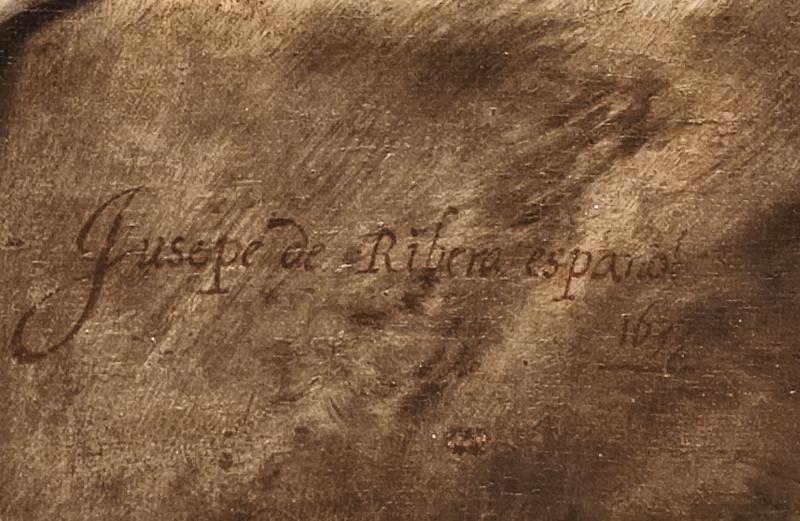 Jusepe de Ribera español